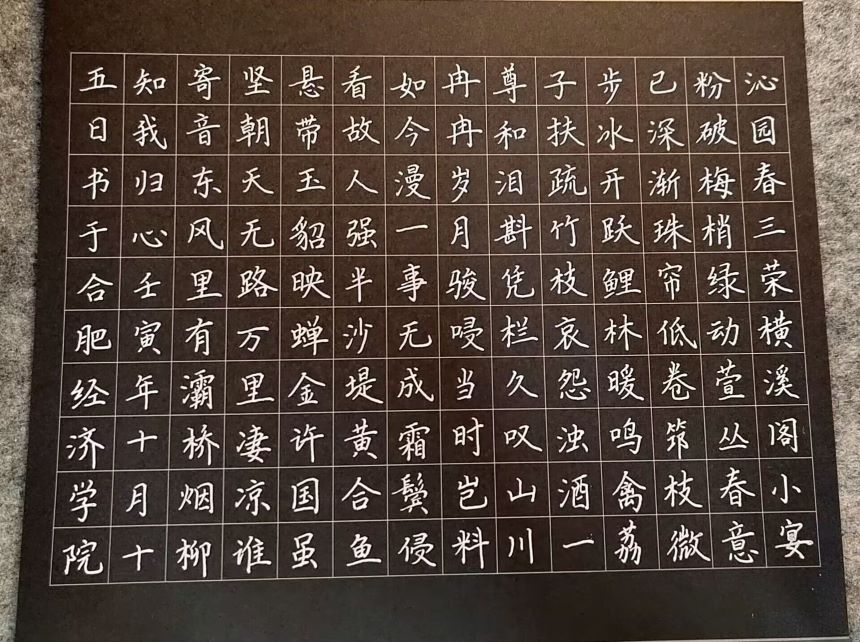 沁园春三荣横溪阁小宴
粉破梅梢绿动萱丛春意
已深渐珠帘低卷筇枝微
步冰开跃鲤林暖鸣禽荔
子扶疏竹枝哀怨浊酒一
尊和泪斟凭栏久叹山川
冉冉岁月骎骎当时岂料
如今漫一事无成霜鬓侵
看故人强半沙堤黄合鱼
悬带玉貂映蝉金许国虽
坚朝天无路万里凄凉谁
寄音东风里有灞桥烟柳
知我归心壬寅年十月十
五日书于合肥经济学院